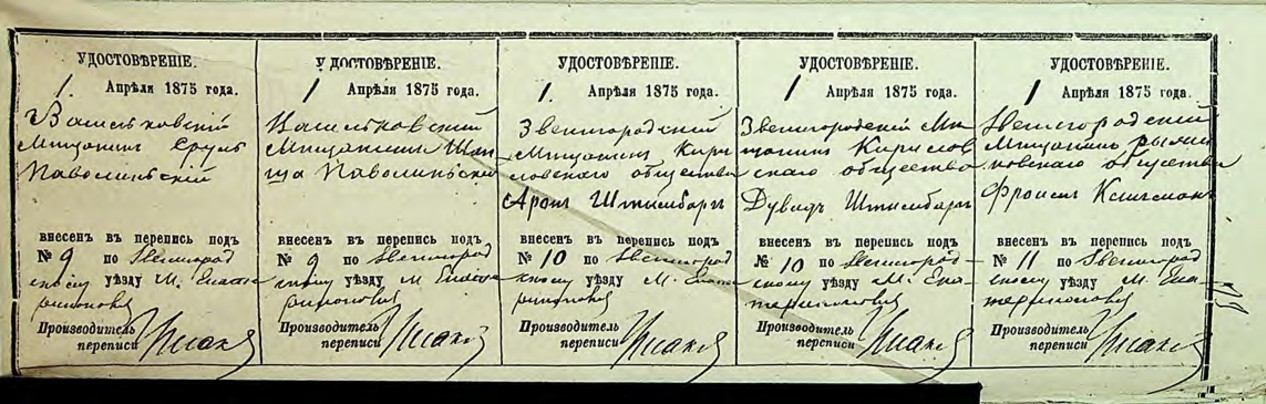 УДОСТОВѢРЕНІЕ.
1. Апрѣля 1875 года.
Васильковскій
Мѣщанинъ Сруль
Паволинскій
внесенъ въ перепись подъ
№ 9 по Звенигород
скому уѣзду М. Екате
ринополь
Производитель
переписи
УДОСТОВѢРЕНІЕ.
1 Апрѣля 1875 года.
Васильковскій
Мѣщанинъ
Паволинскій
внесенъ въ перепись подъ
№ 9 по Звенигород
скому уѣзду М Екате
ринополь
Производитель
переписи
УДОСТОВѢРЕНІЕ.
1. Апрѣля 1875 года.
Звенигородскій
Мѣщанинъ Кири
ловскаго общества
Аронъ
внесенъ въ перепись подъ
№ 10 по Звенигород
скому уѣзду М. Екате
ринополь
Производитель
переписи
УДОСТОВѢРЕНІЕ.
1 Апрѣля 1875 года.
Звенигородскій Мѣ
щанинъ Кирилов
скаго общества
Дувидъ
внесенъ въ перепись подъ
№ 10 по Звенигород-
скому уѣзду М. Ека-
теринополь
Производитель
переписи
УДОСТОВѢРЕНІЕ.
1 Апрѣля 1875 года.
Звенигородскій
Мѣщанинъ
новскаго общества
Фроимъ
внесенъ въ перепись подъ
№ 11 по Звенигород
скому уѣзду М. Ека
теринополь
Производитель
переписи